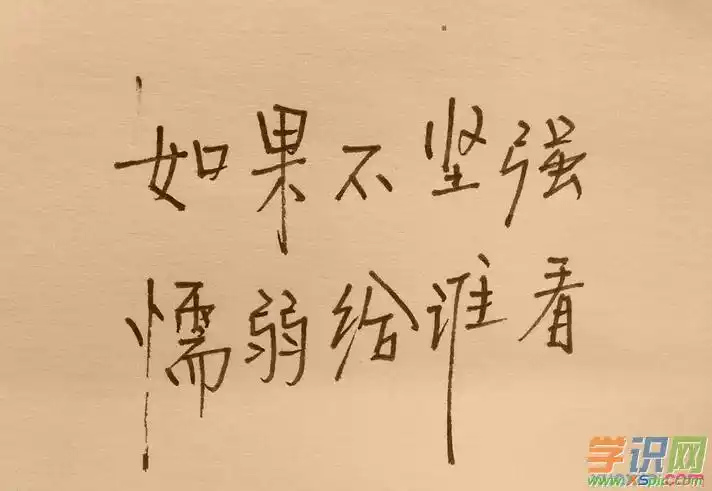 如果不坚强
懦弱给谁看
学识网